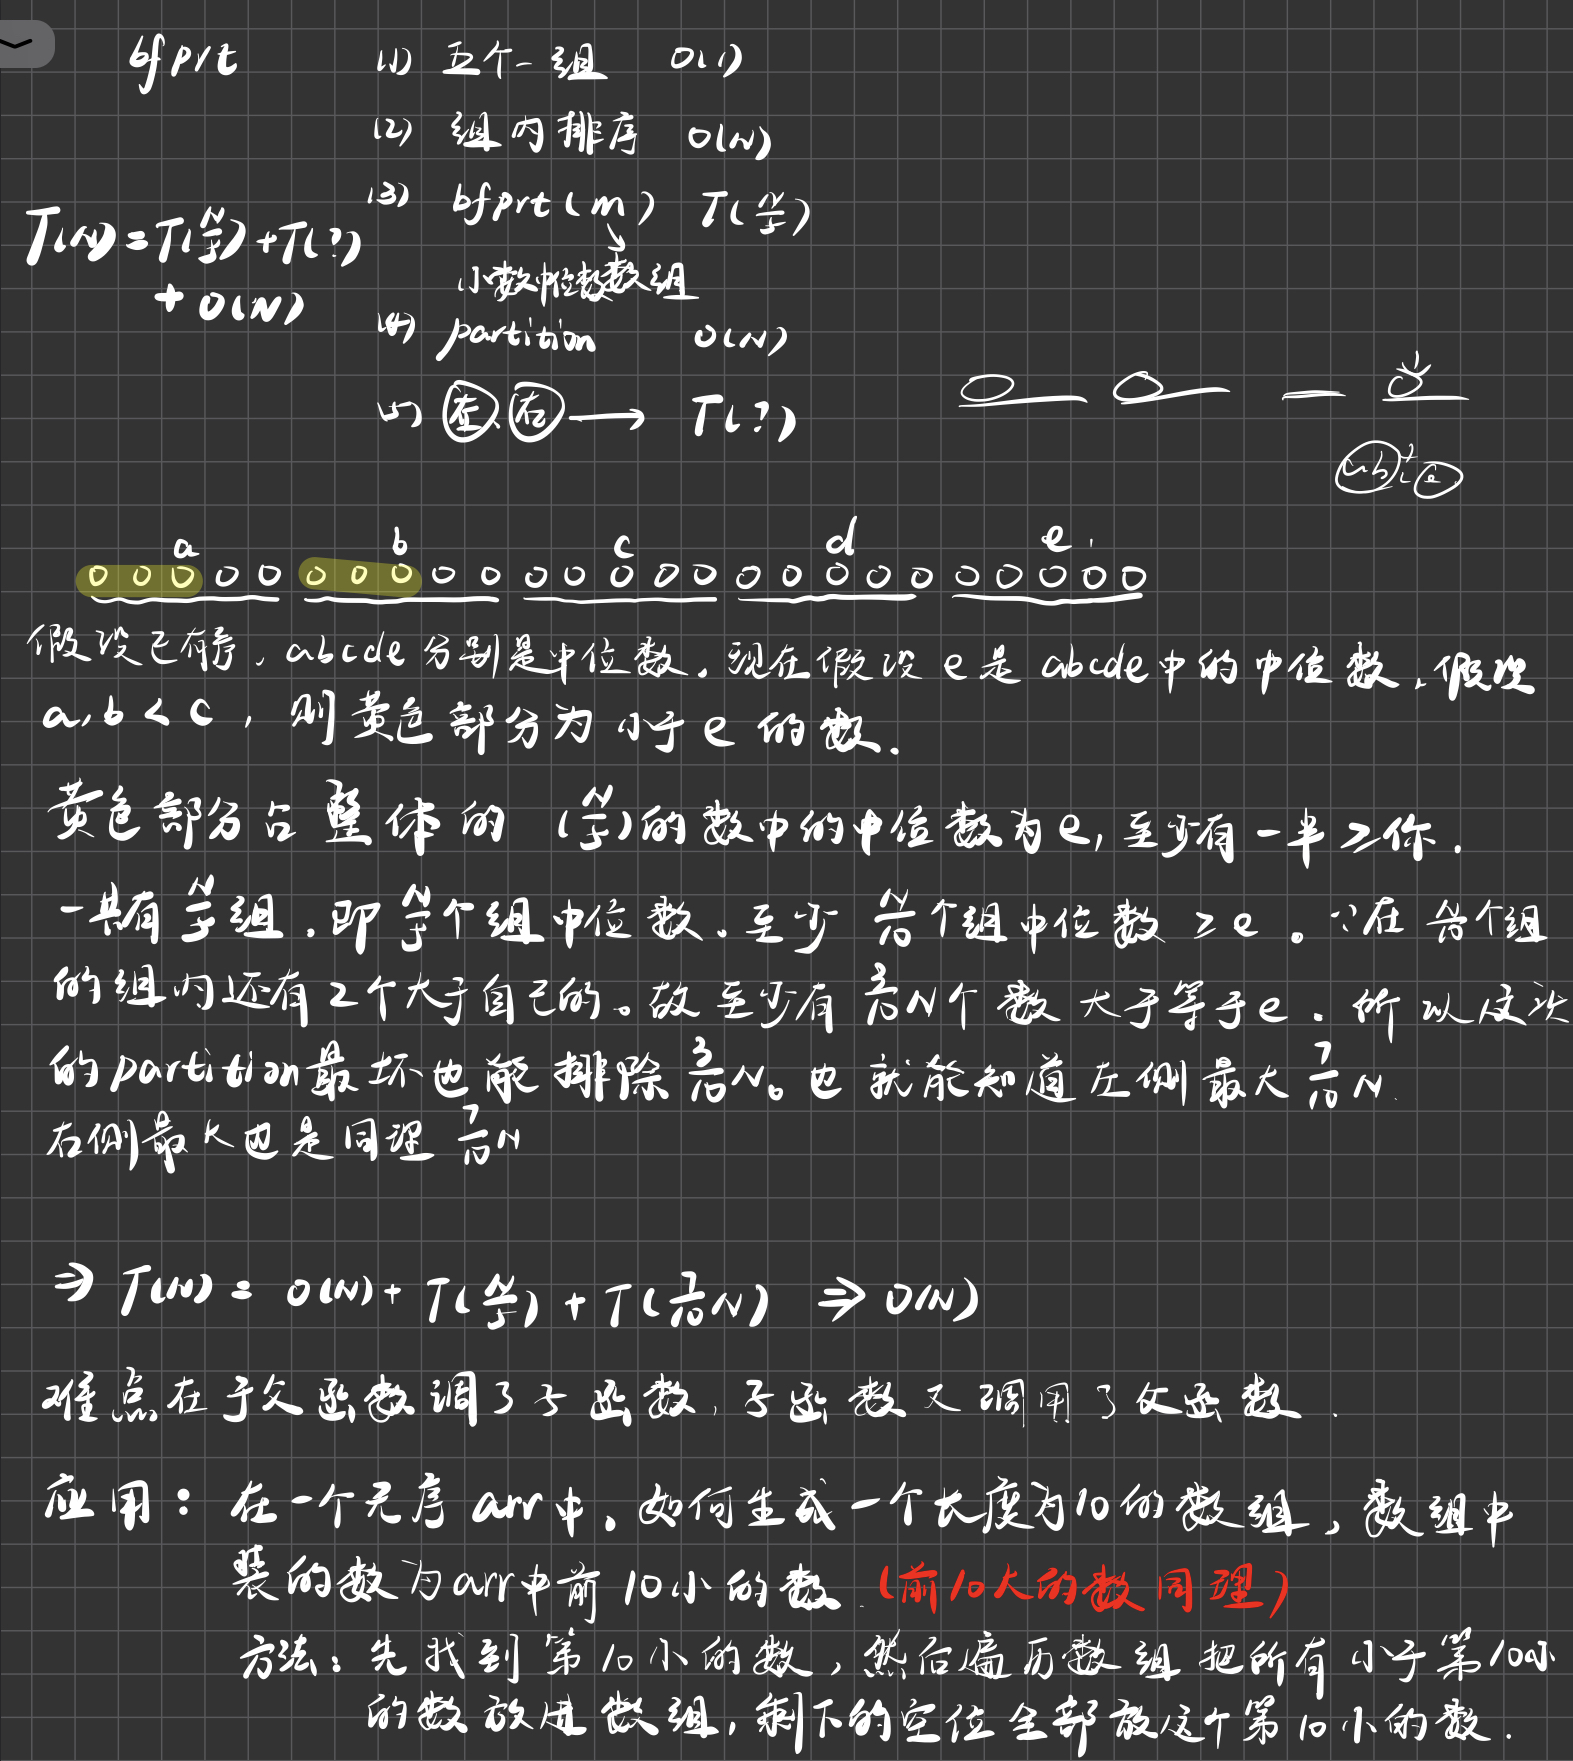 bfprt
(1) 五个一组 O(1)
(2) 组内排序 O(N)
(3) bfprt(m) T(N/5)
小数中位数数组
(4) partition O(N)
(5) 左、右 → T(?)
T(N)=T(N/5)+T(?)
+O(N)
a b c d e
假设已有序，abcde分别是中位数。现在假设e是abcde中的中位数，假设
a,b<c，则黄色部分为小于e的数.
黄色部分占整体的 (N/5)的数中的中位数为e,至少有一半≥你.
一共有N/5组，即N/5个组中位数。至少N/10个组中位数≥e。∵在N/10个组
的组内还有2个大于自己的。故至少有3/10N个数大于等于e。所以这次
的partition最坏也能排除3/10N。也就能知道左侧最大7/10N.
右侧最大也是同理7/10N
⇒ T(N)= O(N)+T(N/5)+T(7/10N) ⇒ O(N)
难点在于父函数调了子函数，子函数又调用了父函数.
应用：在一个无序arr中。如何生成一个长度为10的数组，数组中
装的数为arr中前10小的数.(前10大的数同理)
方法：先找到第10小的数，然后遍历数组把所有小于第10小
的数放进数组，剩下的空位全部放这个第10小的数.